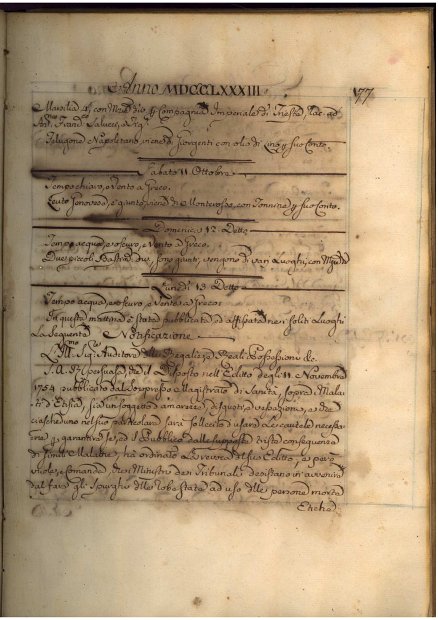 Anno MDCCLXXXIII
77
Marsilia con Compagnia Imperiale di Trieste,
Ant. Franc. Salucci,
Napolitano viene di Giorgenti con olio di Lino p suo Conto.
Sabato 11 Ottobre
Tempo chiaro, e Vento a Greco.
Leuto Genovese, è giunto viene di Monterosso, con Tonnina p suo Conto.
Domenica 12 Detto
Tempo acqua, e oscuro, e Vento a Greco.
Due piccoli Bastim. sono giunti, vengono di vari Luoghi, con
Lunedì 13 Detto
Tempo acqua, e oscuro, e Vento a Greco.
In questa mattina è stata pubblicata, ed affissata nei soliti Luoghi
La Seguente Notificazione
L'Ill. Sig. Auditore delle Regalie, e Reali Possessioni di
S. A. R. persuasa, che il Disposto nell'Editto degli 11 Novembre
1754 pubblicato dal Soppresso Magistrato di Sanità, sopra i Mala-
ti d'Etisia, sia un soggetto amorarre, e
ciascheduno nel suo particolare sarà sollecito usare le cautele necessa-
rie p garantire se, ed il Pubblico dalle supposte triste conseguenze
di simil Malattie, ha ordinato la revoca di esso Editto, e però
vuole, e comanda, che i Ministri dei Tribunali desistano in avvenire
dal fare gli Spurghi delle robe state ad uso delle persone morte
Etiche